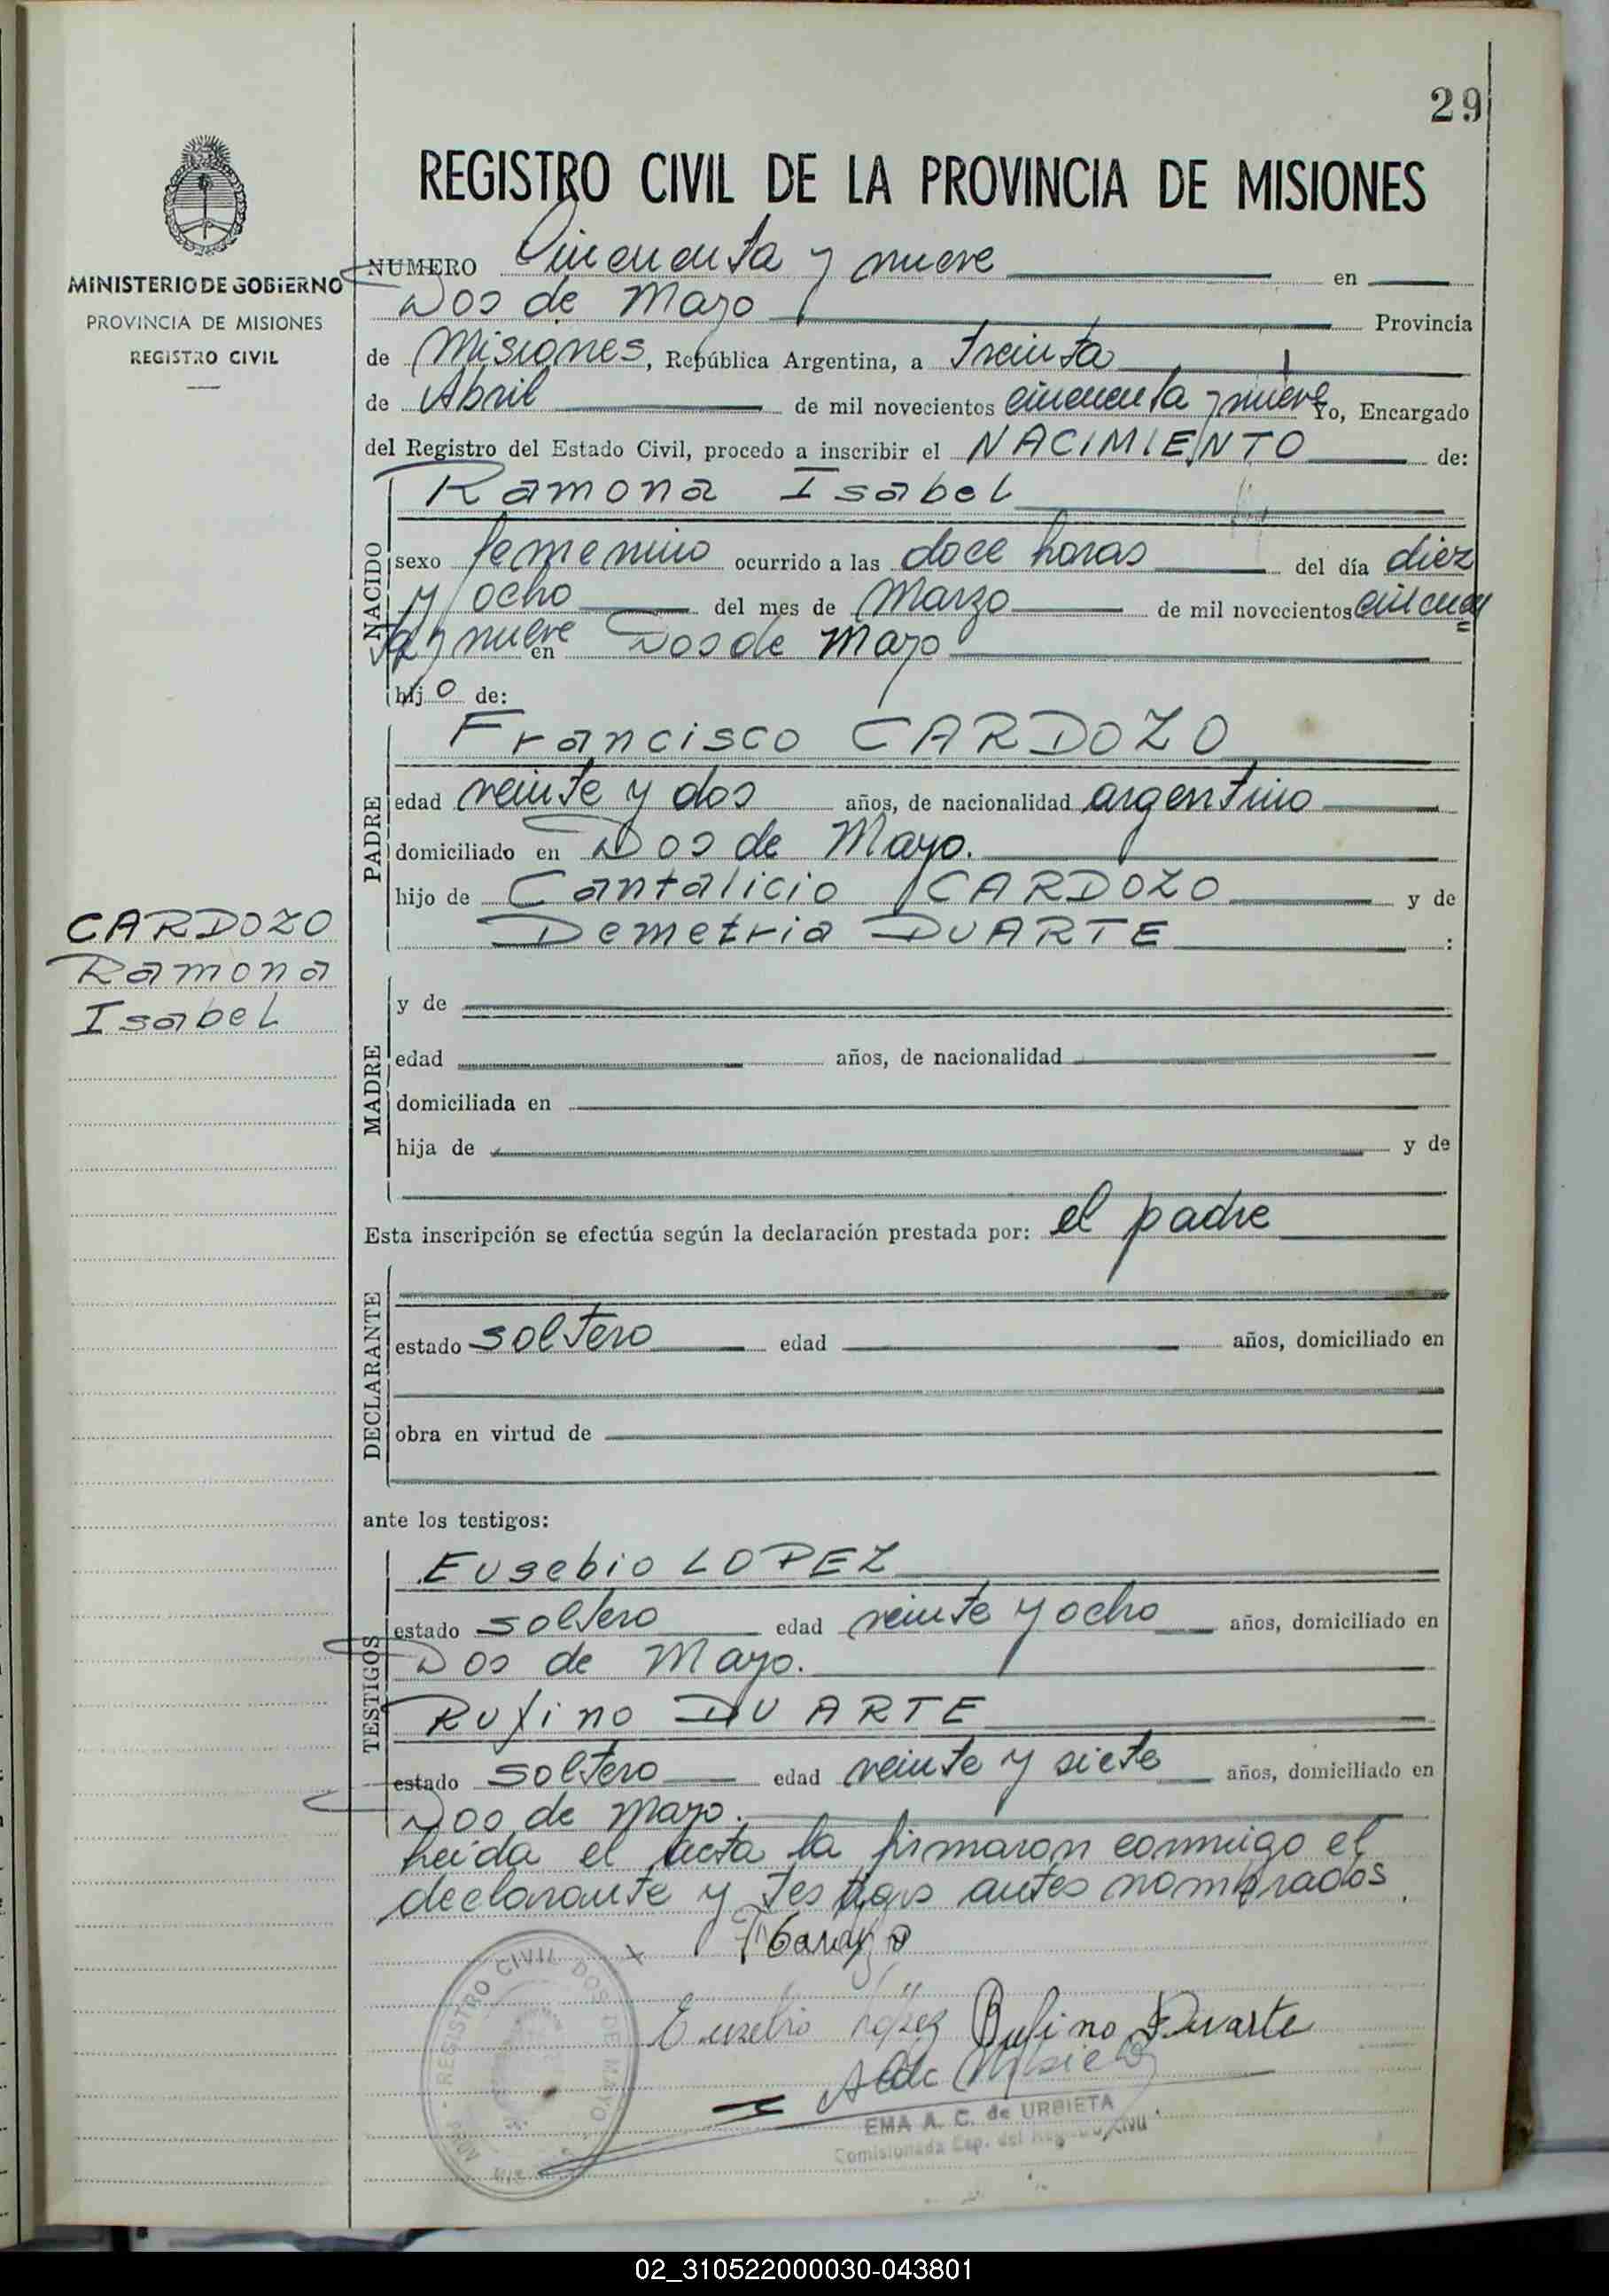 29
REGISTRO CIVIL DE LA PROVINCIA DE MISIONES
MINISTERIO DE GOBIERNO
PROVINCIA DE MISIONES
REGISTRO CIVIL
NUMERO Cincuenta y nueve en
Dos de Mayo Provincia
de Misiones, República Argentina, a treinta
de Abril de mil novecientos cincuenta y nueve Yo, Encargado
del Registro del Estado Civil, procedo a inscribir el NACIMIENTO de:
NACIDO
Ramona Isabel
sexo femenino ocurrido a las doce horas del día diez
y ocho del mes de Marzo de mil novecientos cincuen
ta y nueve en Dos de Mayo
hij o de:
PADRE
Francisco CARDOZO
edad veinte y dos años, de nacionalidad argentino
domiciliado en Dos de Mayo.
hijo de Cantalicio CARDOZO y de
Demetria DUARTE :
CARDOZO
Ramona
Isabel
MADRE
y de
edad años, de nacionalidad
domiciliada en
hija de y de
Esta inscripción se efectúa según la declaración prestada por: el padre
DECLARANTE
estado soltero edad años, domiciliado en
obra en virtud de
ante los testigos:
TESTIGOS
Eusebio LOPEZ
estado soltero edad veinte y ocho años, domiciliado en
Dos de Mayo.
Rufino DUARTE
estado soltero edad veinte y siete años, domiciliado en
Dos de Mayo.
Leida el acta la firmaron conmigo el
declarante y testigos antes nombrados.
REGISTRO CIVIL DOS DE MAYO
Eusebio López Rufino Duarte
EMA A. C. de URBIETA
Comisionada Esp. del Registro Civil
02_310522000030-043801